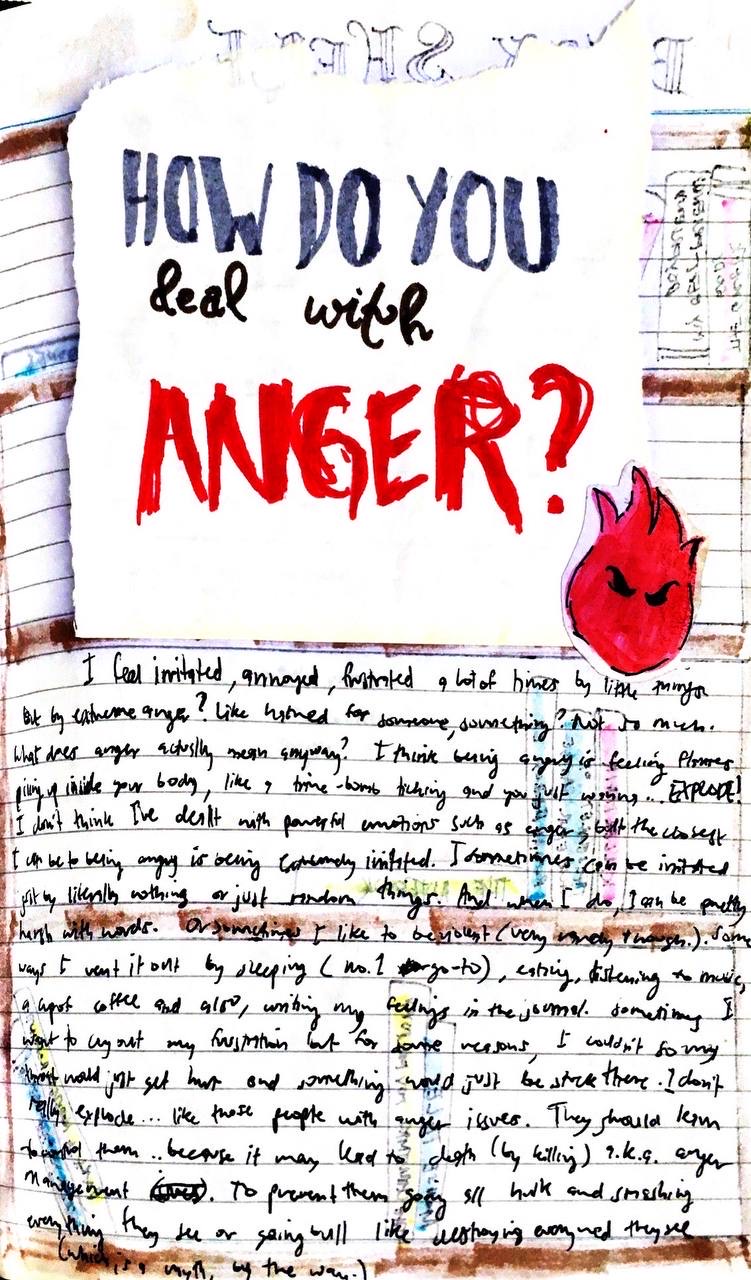 HOW DO YOU
deal with
ANGER?
I feel irritated, annoyed, frustrated a lot of times by little things
But by extreme anger? Like hatred for someone, something? Not so much.
What does anger actually mean anyway? I think being angry is feeling flames
piling up inside your body, like a time-bomb ticking and you just waiting... EXPLODE!
I don't think I've dealt with powerful emotions such as anger, but the closest
I can be to being angry is being extremely irritated. I sometimes can be irritated
just by literally nothing or just random things. And when I do, I can be pretty
harsh with words. Or sometimes I like to be violent (very rarely though.). Some
ways I vent it out by sleeping (no.1 go-to), eating, listening to music,
a cup of coffee and also, writing my feelings in the journal. Sometimes I
want to cry out my frustration but for some reasons, I couldn't so my
throat would just get hurt and something would just be stuck there. I don't
really explode... like those people with anger issues. They should learn
to control them.. because it may lead to death (by killing) a.k.a. anger
management. To prevent them going all hulk and smashing
everything they see or going bull like destroying every red they see
(which is a myth, by the way.)